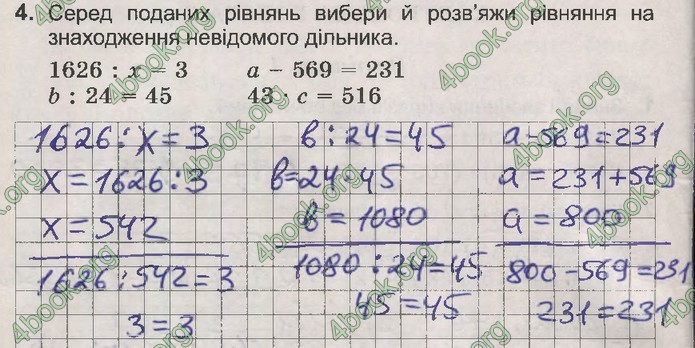 4. Серед поданих рівнянь вибери й розв'яжи рівняння на
знаходження невідомого дільника.
1626 : x = 3   a − 569 = 231
b : 24 = 45   43 · c = 516
1626 : x = 3   в : 24 = 45   а - 569 = 231
x = 1626 : 3   в = 24 · 45   а = 231 + 569
x = 542   в = 1080   а = 800
1626 : 542 = 3   1080 : 24 = 45   800 - 569 = 231
3 = 3   45 = 45   231 = 231
4book.org